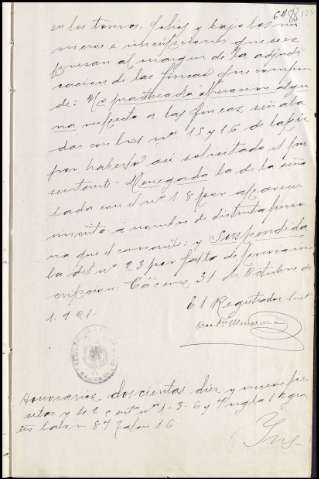 en los tomos, folios y bajo los nú
meros e inscripciones que se ex
presan al margen de la adjudi
cación de las fincas que compren
de: No practicada operacion algu
na respecto a las fincas señala
das con los nº 15 y 16 de
por haberlo así solicitado el pre
sentante. Denegada la de la seña
lada con el nº 18 por aparecer
inscrita a nombre de distinta perso
na que el causante; y Suspendida
la del nº 23 por falta de previa ins
cripcion. Cáceres, 31 de Octubre de
1.921.
El Registrador
Honorarios, doscientas diez y nueve pese
tas y 40 cent nº 1-3-6 y 7